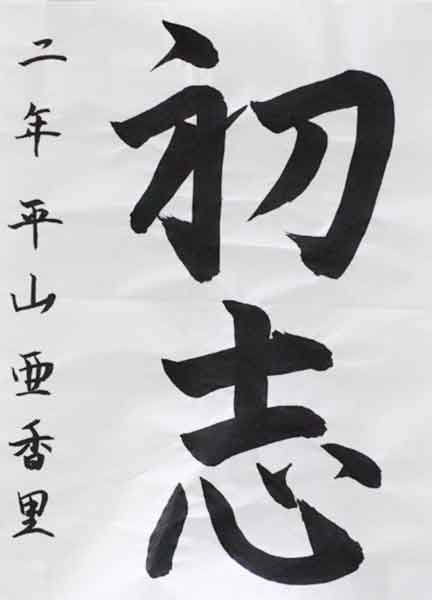 初志
二年 平山亜香里